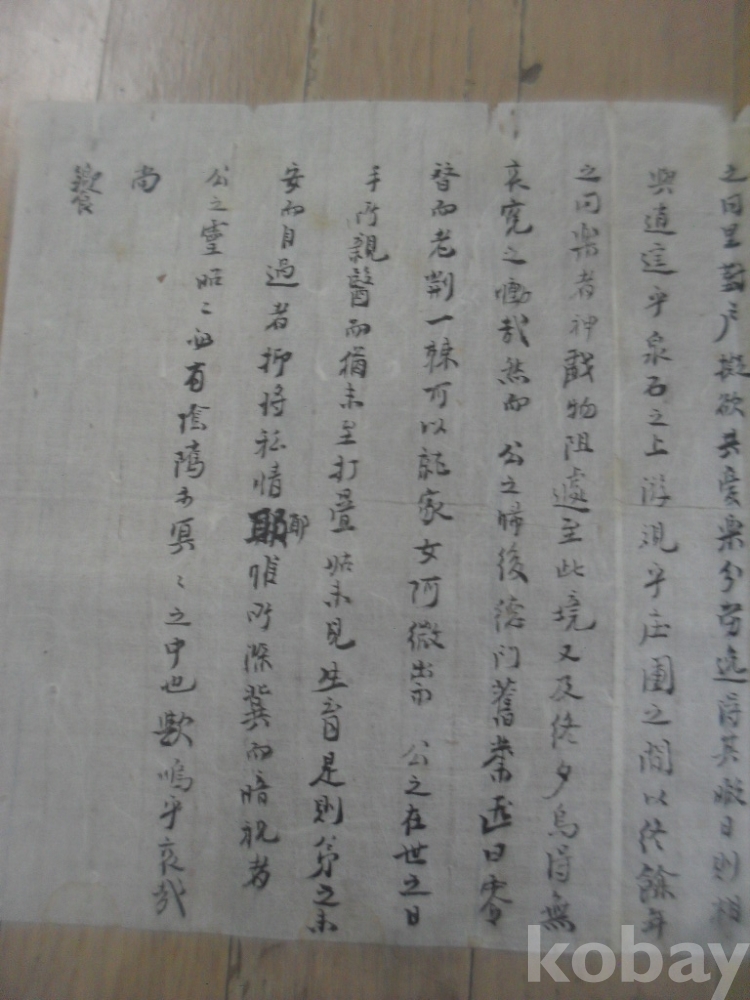 之同里對户擬欲共愛樂分苦逸得其暇日則相
與逍遥乎泉石之上游泥乎庄園之間以終餘年
之同樂者神戲物阻遽至此境又及終夕烏得無
哀寃之慟哉然而 公之歸後德門舊業近日零
替而老荆一棘可以託家女阿微出示 公之在世之日
手所親醫而猶未至打疊 姑未見生育是則弟之未
安而自過者抑將私情耶惟所深冀而暗祝者
公之靈昭〻必有陰隲於冥〻之中也歟嗚乎哀哉
尚
饗
kobay